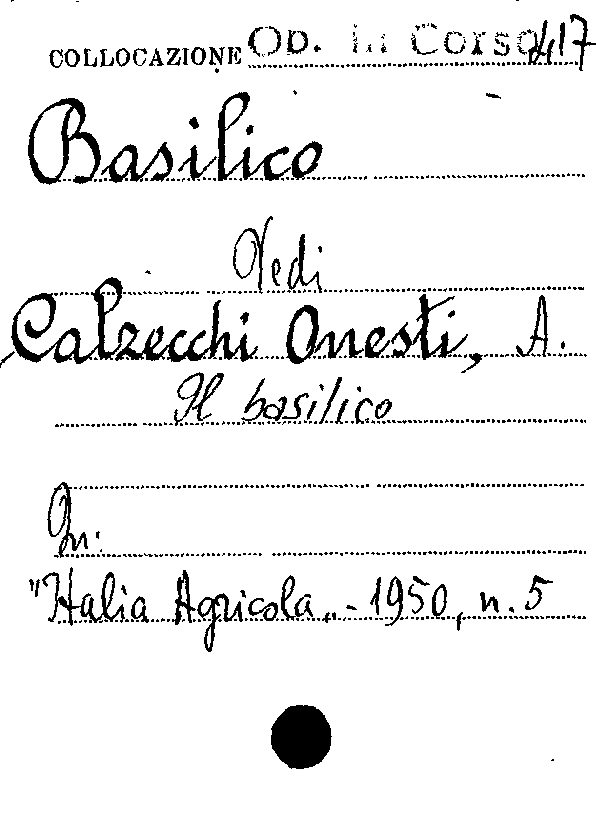 COLLOCAZIONE Op. in Corso 417
Basilico
Vedi
Calzecchi Onesti, A.
Il basilico
In:
"Italia Agricola„ - 1950, n. 5